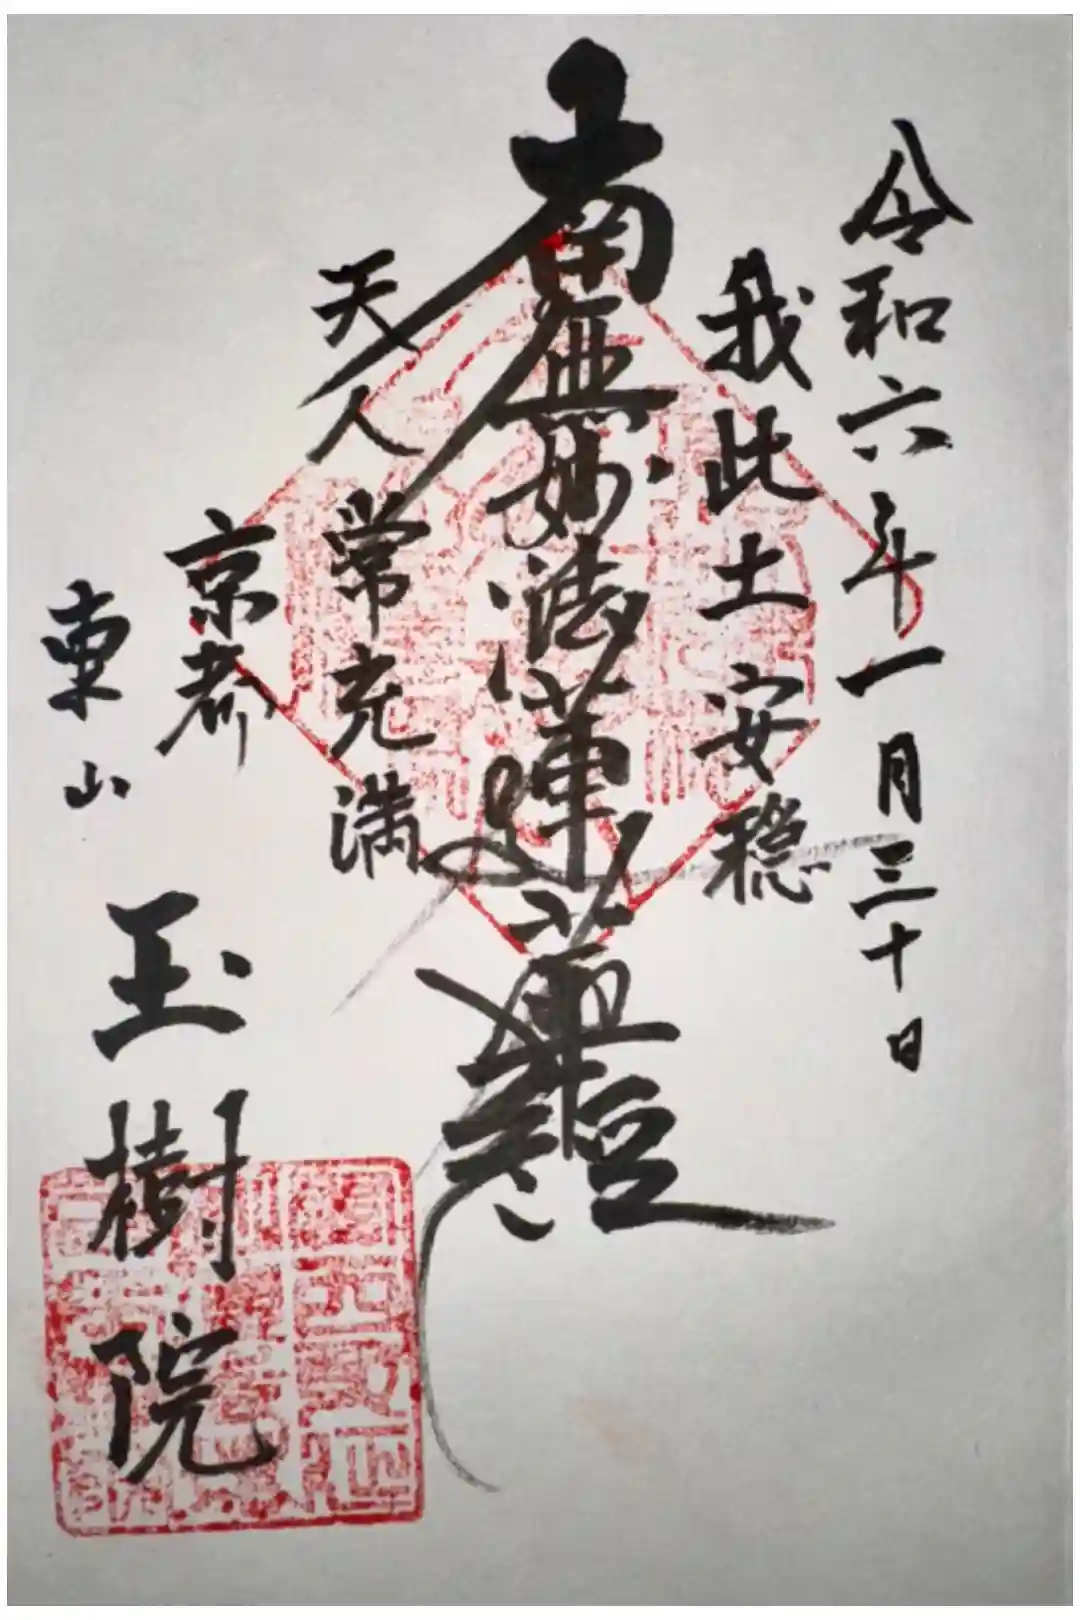 令和六年一月三十日
我此土安穏
南無妙法蓮華經
天人常充満
京都
東山
玉樹院